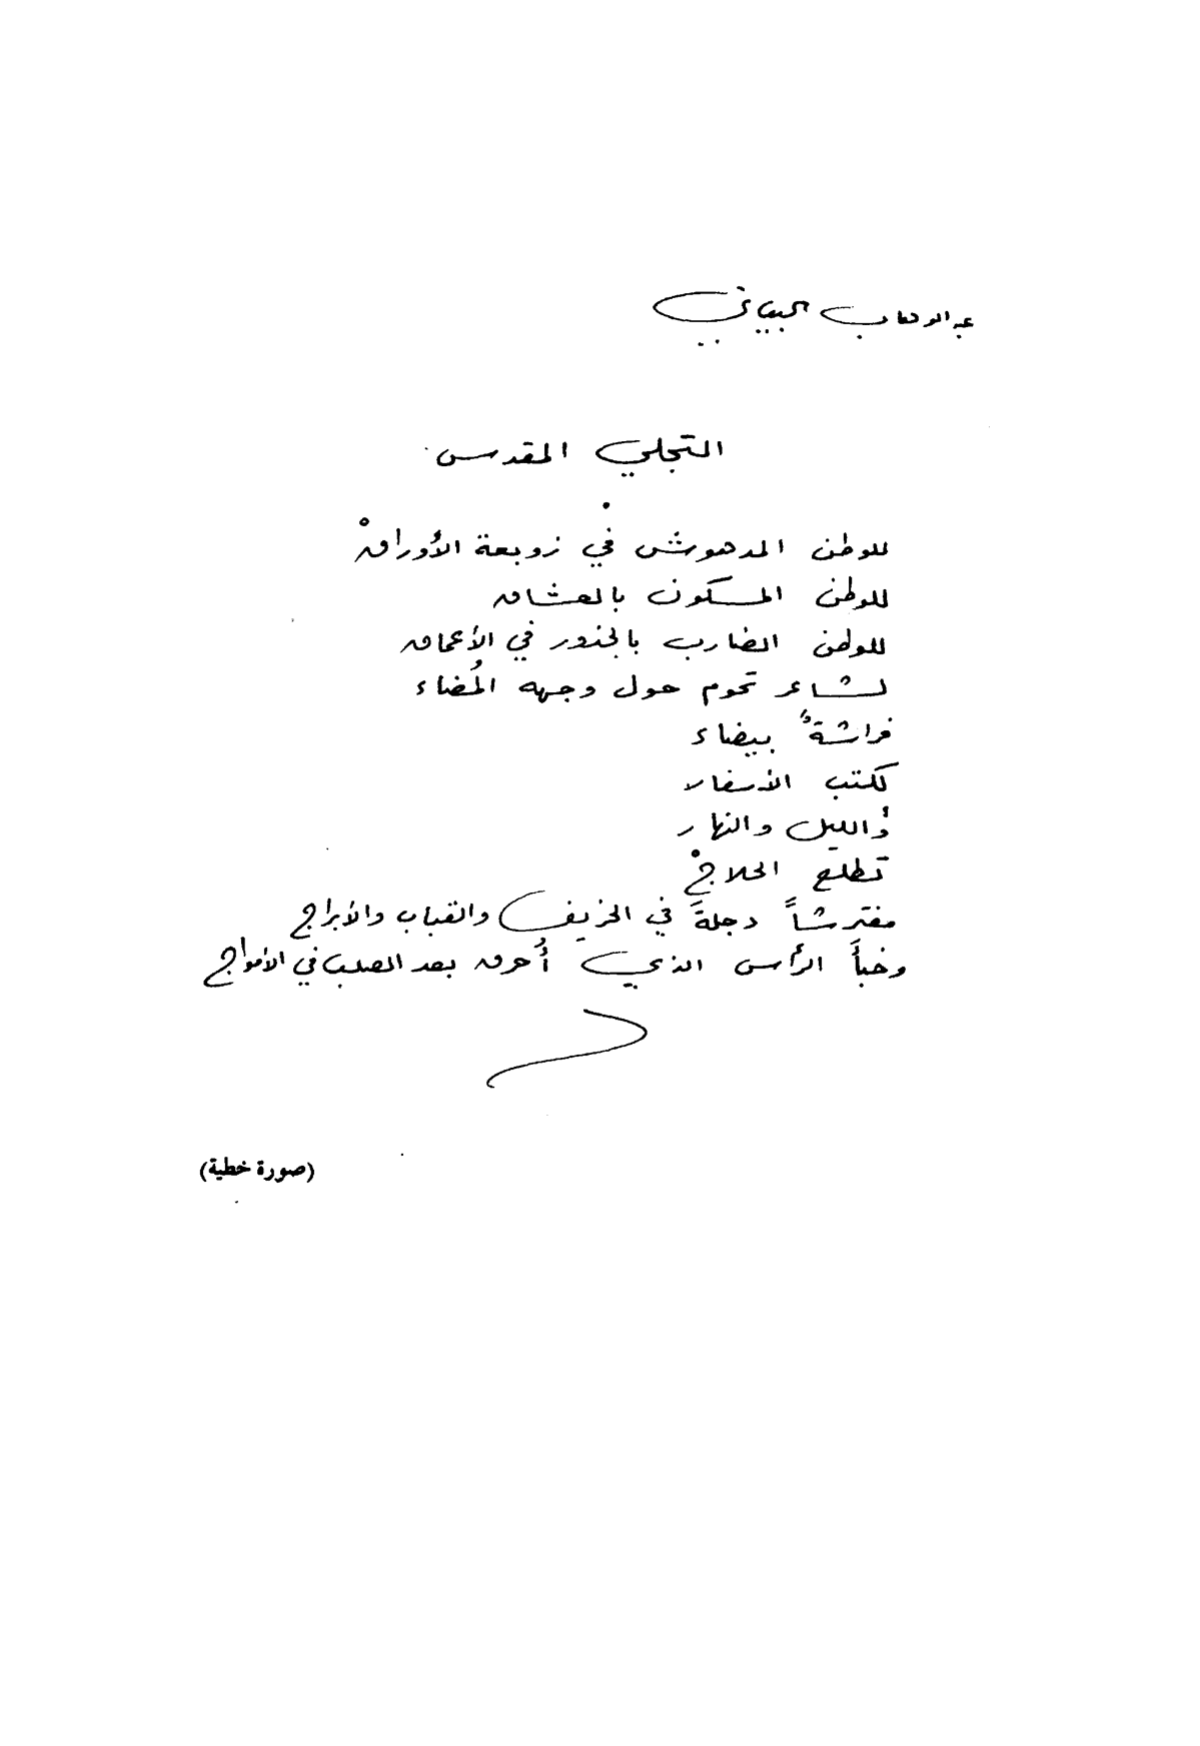 عبد الوهاب البياتي
التجلي المقدس
للوطن المدهوش في زوبعة الأوراقْ
للوطن المسكون بالعشاق
للوطن الضارب بالجذور في الأعماق
لشاعر تحوم حول وجهه المُضاء
فراشةٌ بيضاء
ككتب الأسفار
والليل والنهار
تطلع الحلاجْ
مفترشاً دجلةَ في الخريف والقباب والأبراج
وخبأَ الرأس الذي أُحرق بعد الصلب في الأمواج
(صورة خطية)